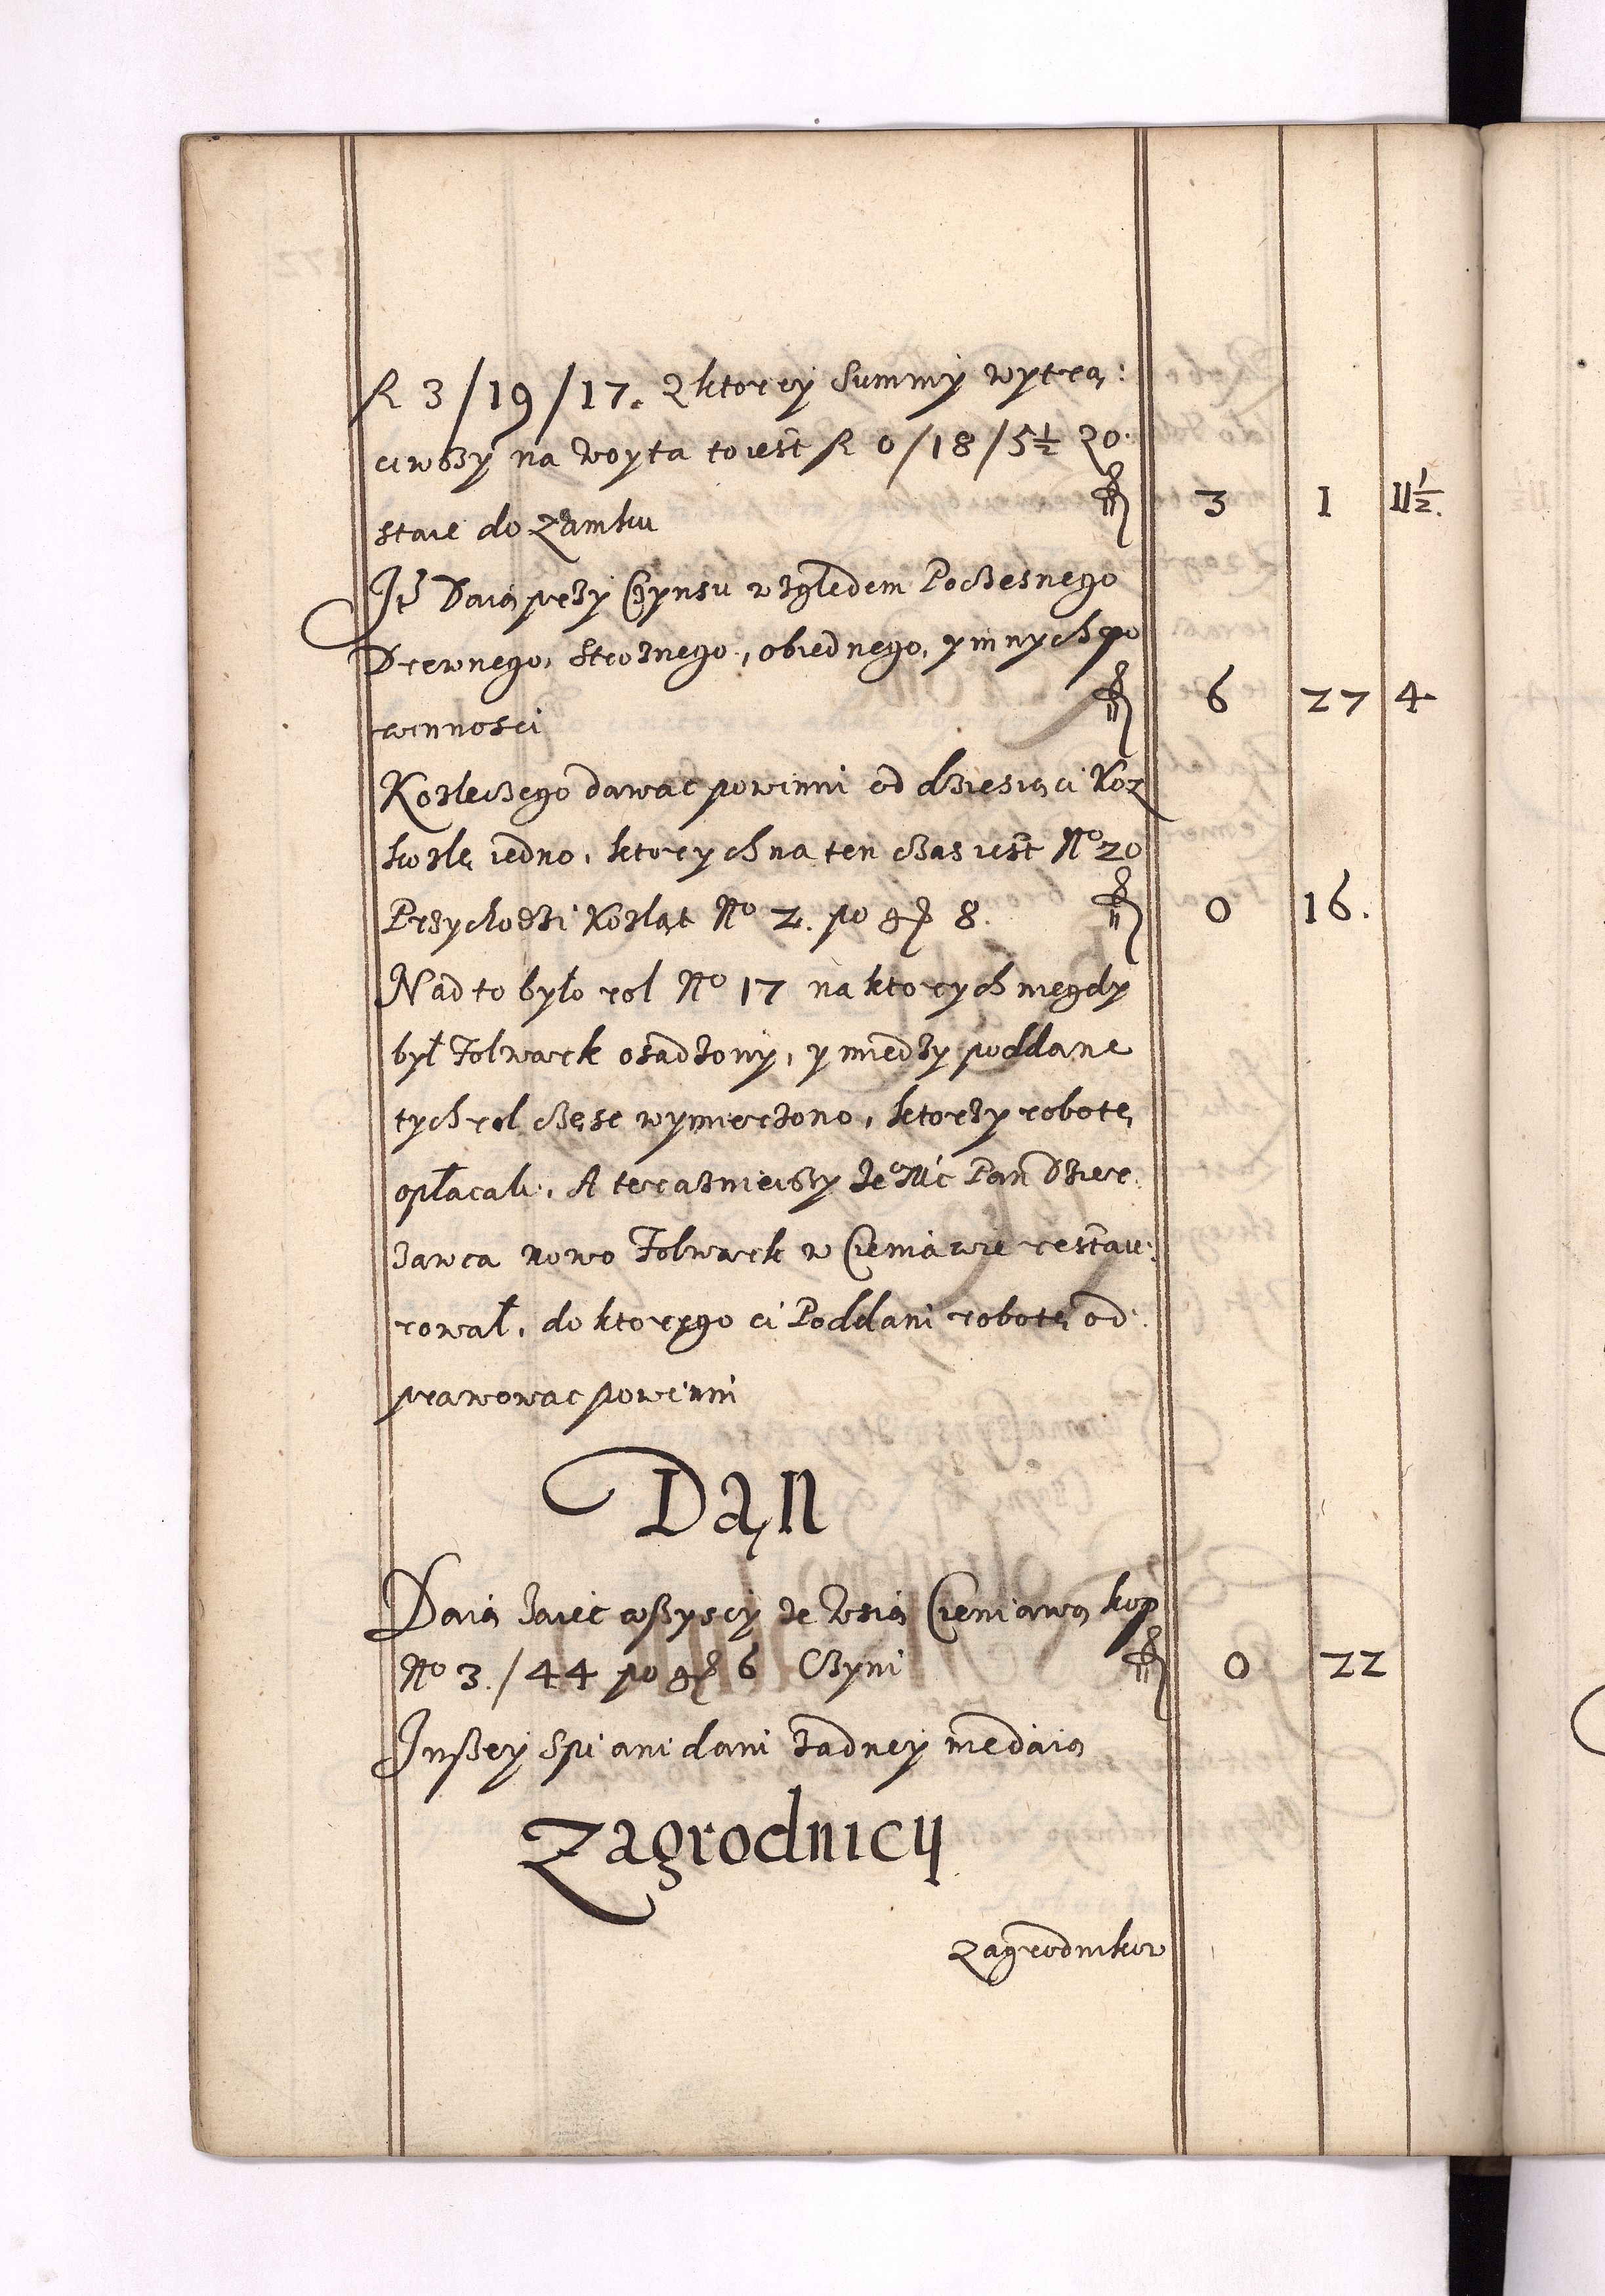 fl 3/19/17. Z ktorey Summy wytrą:
ciwszy na woyta to iest fl 0/18/5½ zo:
staie do Zamku fl 3 1 11½.
Itᵗ Daią przy Czynsu względem Poczesnego
Drewnego, Strożnego, obiednego, y innych po
winnosci fl 6 27 4
Kozleczego dawac powinni od dziesięci Koz
kozlę iedno, ktorych na ten czas iest Nº 20
Przychodzi Kozląt Nº 2. po gr 8. fl 0 16.
Nad to było rol Nº 17 na ktorych niegdy
był Folwark osadzony, y miedzy poddane
tych rol częsc wymierzono, ktorzy robotę
opłacali. A teraznieiszy Je Mc Pan Dzier:
zawca nowo Folwark w Cieniawie restau:
rował, do ktorego ci Poddani robotę od:
prawowac powinni
Dąn
Daią Jaiec wszyscy ze Wsią Cieniawą kop
Nº 3./44 po gr 6 Czyni fl 0 22
Inszey Spi ani dani zadney niedaią
Zagrodnicy
Zagrodnikow